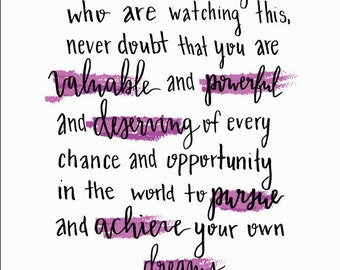 who are watching this,
never doubt that you are
valuable and powerful
and deserving of every
chance and opportunity
in the world to pursue
and achieve your own
dreams